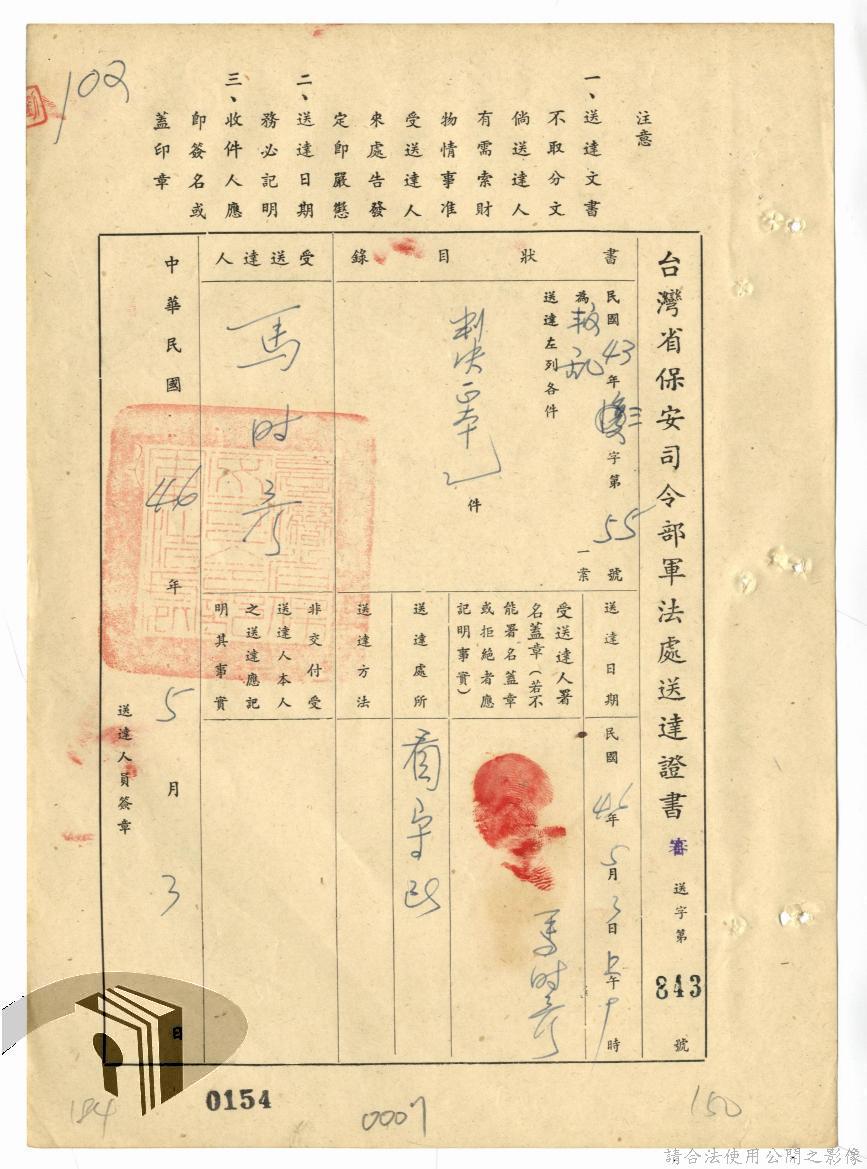 102
注意
一、送達文書
不取分文
倘送達人
有需索財
物情事准
受送達人
來處告發
定即嚴懲
二、送達日期
務必記明
三、收件人應
即簽名或
蓋印章
台灣省保安司令部軍法處送達證書 審 送字第 843 號
書狀目錄
民國43年 字第55號
為叛亂一案
送達左列各件
判決正本乙件
送達日期
民國46年5月3日上午 時
受送達人署
名蓋章(若不
能署名蓋章
或拒絕者應
記明事實)
馬时彦
送達處所
看守所
送達方法
受送達人
馬时彦
非交付受
送達人本人
之送達應記
明其事實
中華民國46年5月3日
送達人員簽章
184
0154
0007
150
請合法使用公開之影像